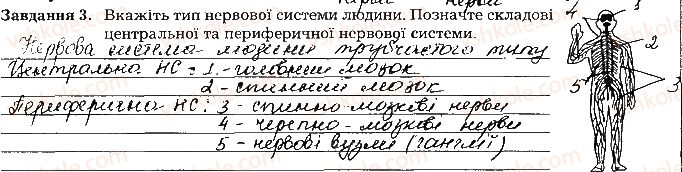 Завдання 3. Вкажіть тип нервової системи людини. Позначте складові
центральної та периферичної нервової системи.
Нервова система людини трубчастого типу
Центральна НС: 1 - головний мозок
2 - спинний мозок
Периферична НС: 3 - спинно-мозкові нерви
4 - черепно-мозкові нерви
5 - нервові вузли (ганглії)
4
1
2
5
3